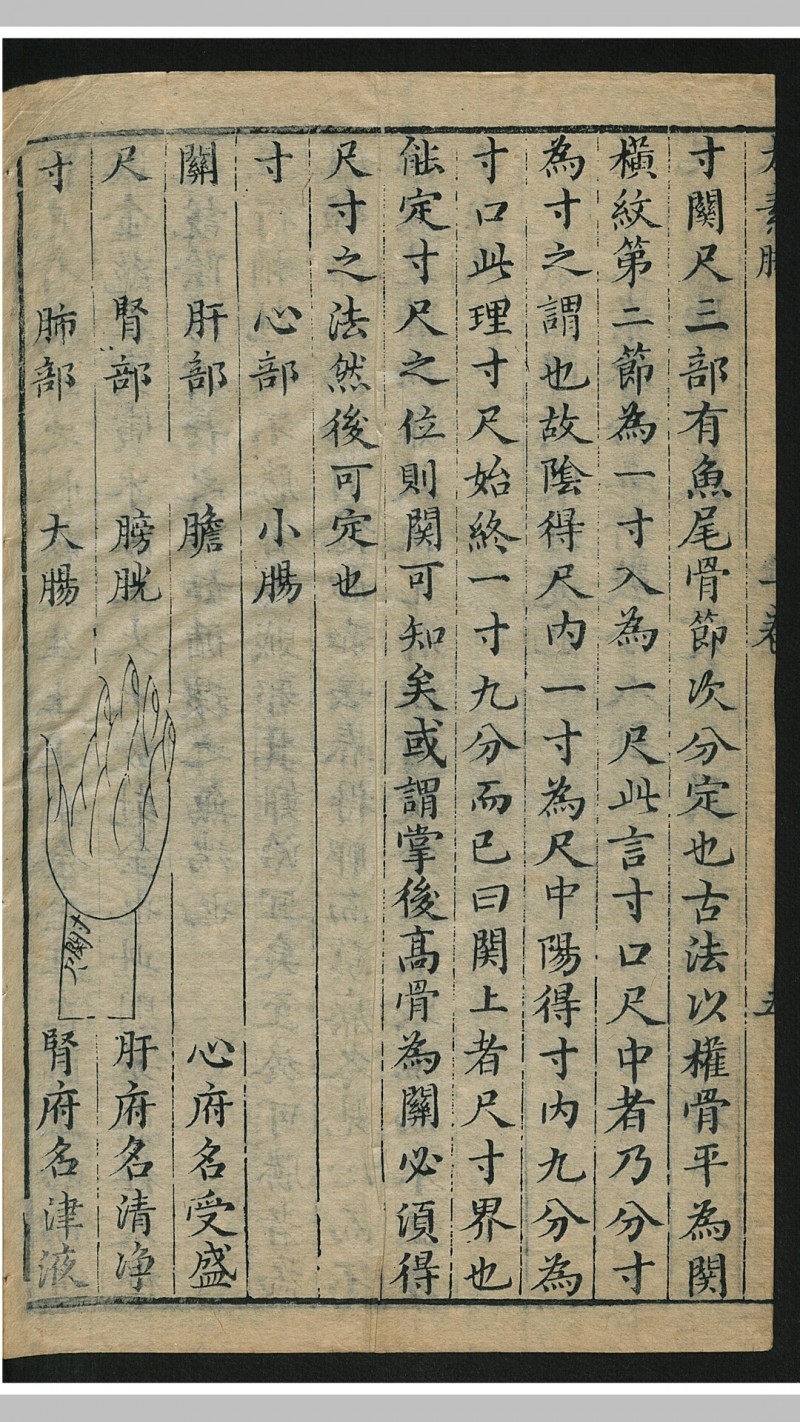 太素脉 一卷 五
寸関尺三部有魚尾骨節次分定也古法以權骨平為関
橫紋第二節為一寸入為一尺此言寸口尺中者乃分寸
為寸之謂也故陰得尺內一寸為尺中陽得寸內九分為
寸口此理寸尺始終一寸九分而已曰関上者尺寸界也
能定寸尺之位則関可知矣或謂掌後髙骨為關必須得
尺寸之法然後可定也
寸 心部 小腸
關 肝部 膽 心府名受盛
尺 腎部 膀胱 肝府名清净
寸 肺部 大腸 腎府名津液
寸関尺